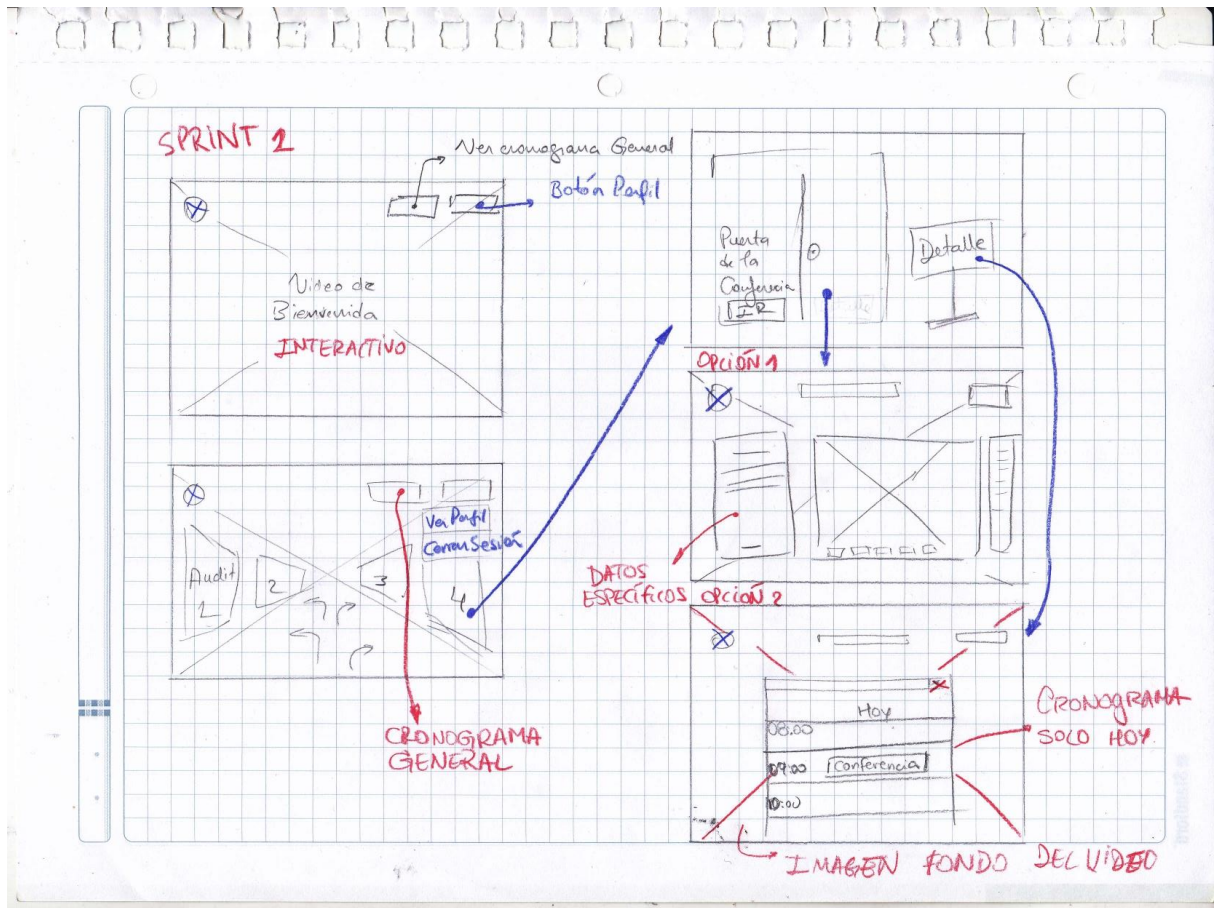 SPRINT 2
Ver cronograma General
Botón Perfil
Video de
Bienvenida
INTERACTIVO
Ver Perfil
Cerrar Sesión
Audit
1
2
3
4
CRONOGRAMA
GENERAL
Puerta
de la
Conferencia
IR
Detalle
OPCIÓN 1
DATOS
ESPECÍFICOS
OPCIÓN 2
Hoy
08:00
09:00 Conferencia
10:00
CRONOGRAMA
SOLO HOY
IMAGEN FONDO DEL VIDEO